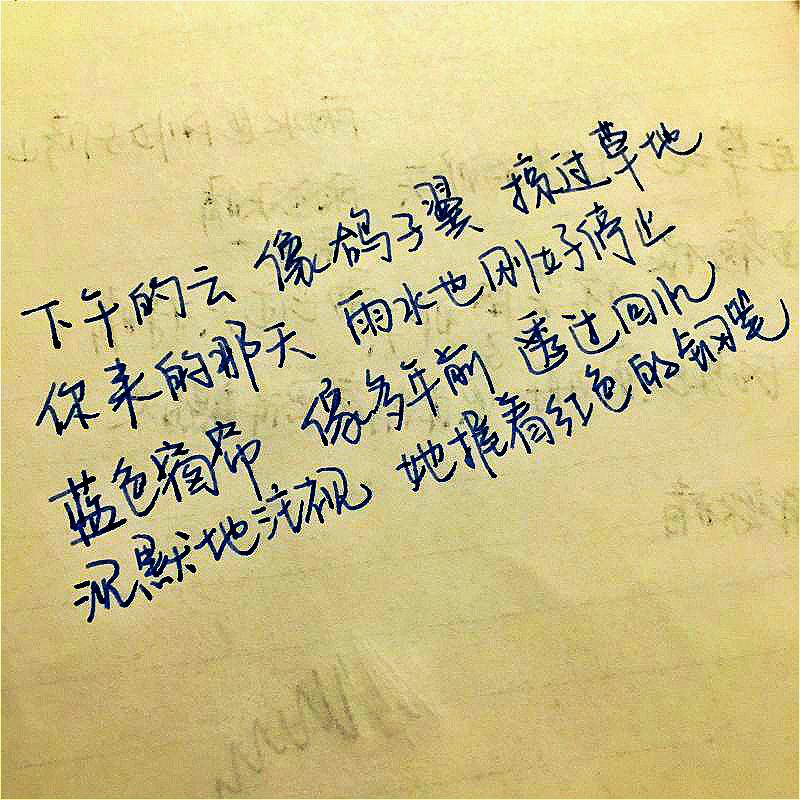 下午的云 像鸽子翼 掠过草地
你来的那天 雨水也刚好停止
蓝色窗帘 像多年前 透过回忆
沉默地注视 她握着红色的钢笔